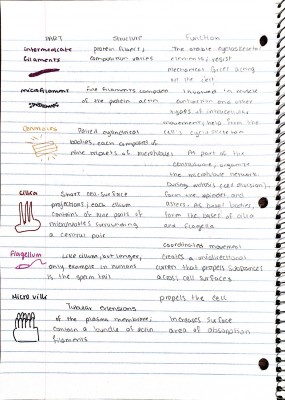 PART Structure Function
intermediate protein fibers; The stable cytoskeletal
filaments composition varies elements; resist
mechanical forces acting
on the cell
microfilaments fine filaments composed Involved in muscle
of the protein actin contraction and other
types of intracellular
movements, help form the
Centrioles Paired cylindrical cell's cytoskeleton
bodies, each composed of
nine triplets of microtubules As part of the
centrosome, organize
the microtubule network
During mitosis (cell division),
cilica Short cell surface form the spindle and
projections; each cilium asters. As basal bodies,
contains of nine pairs of form the bases of cilia
microtubules surrounding and flagella
a central pair
coordinated movement
Flagellum Like cilium, but longer; creates a unidirectional
only example in humans current that propels substances
is the sperm tail across cell surfaces
Micro villi propels the cell
Tubular extensions
of the plasma membrane; Increases surface
contain a bundle of actin area of absorption
filaments